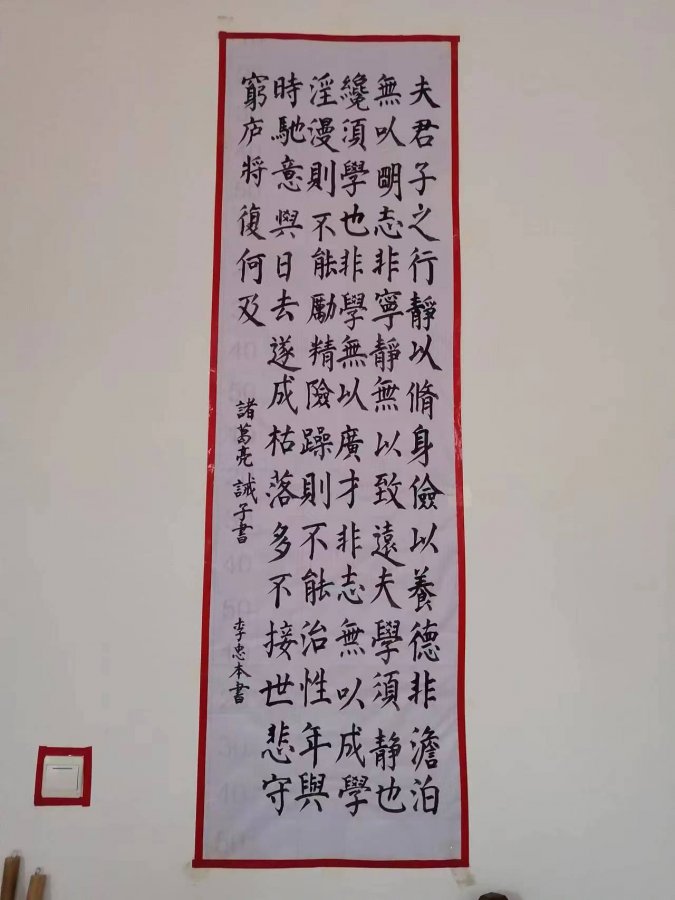 夫君子之行靜以脩身儉以養德非澹泊
無以明志非寧靜無以致遠夫學須靜也
纔須學也非學無以廣才非志無以成學
淫漫則不能勵精險躁則不能治性年與
時馳意與日去遂成枯落多不接世悲守
窮庐將復何及
諸葛亮 誡子書
李忠本書